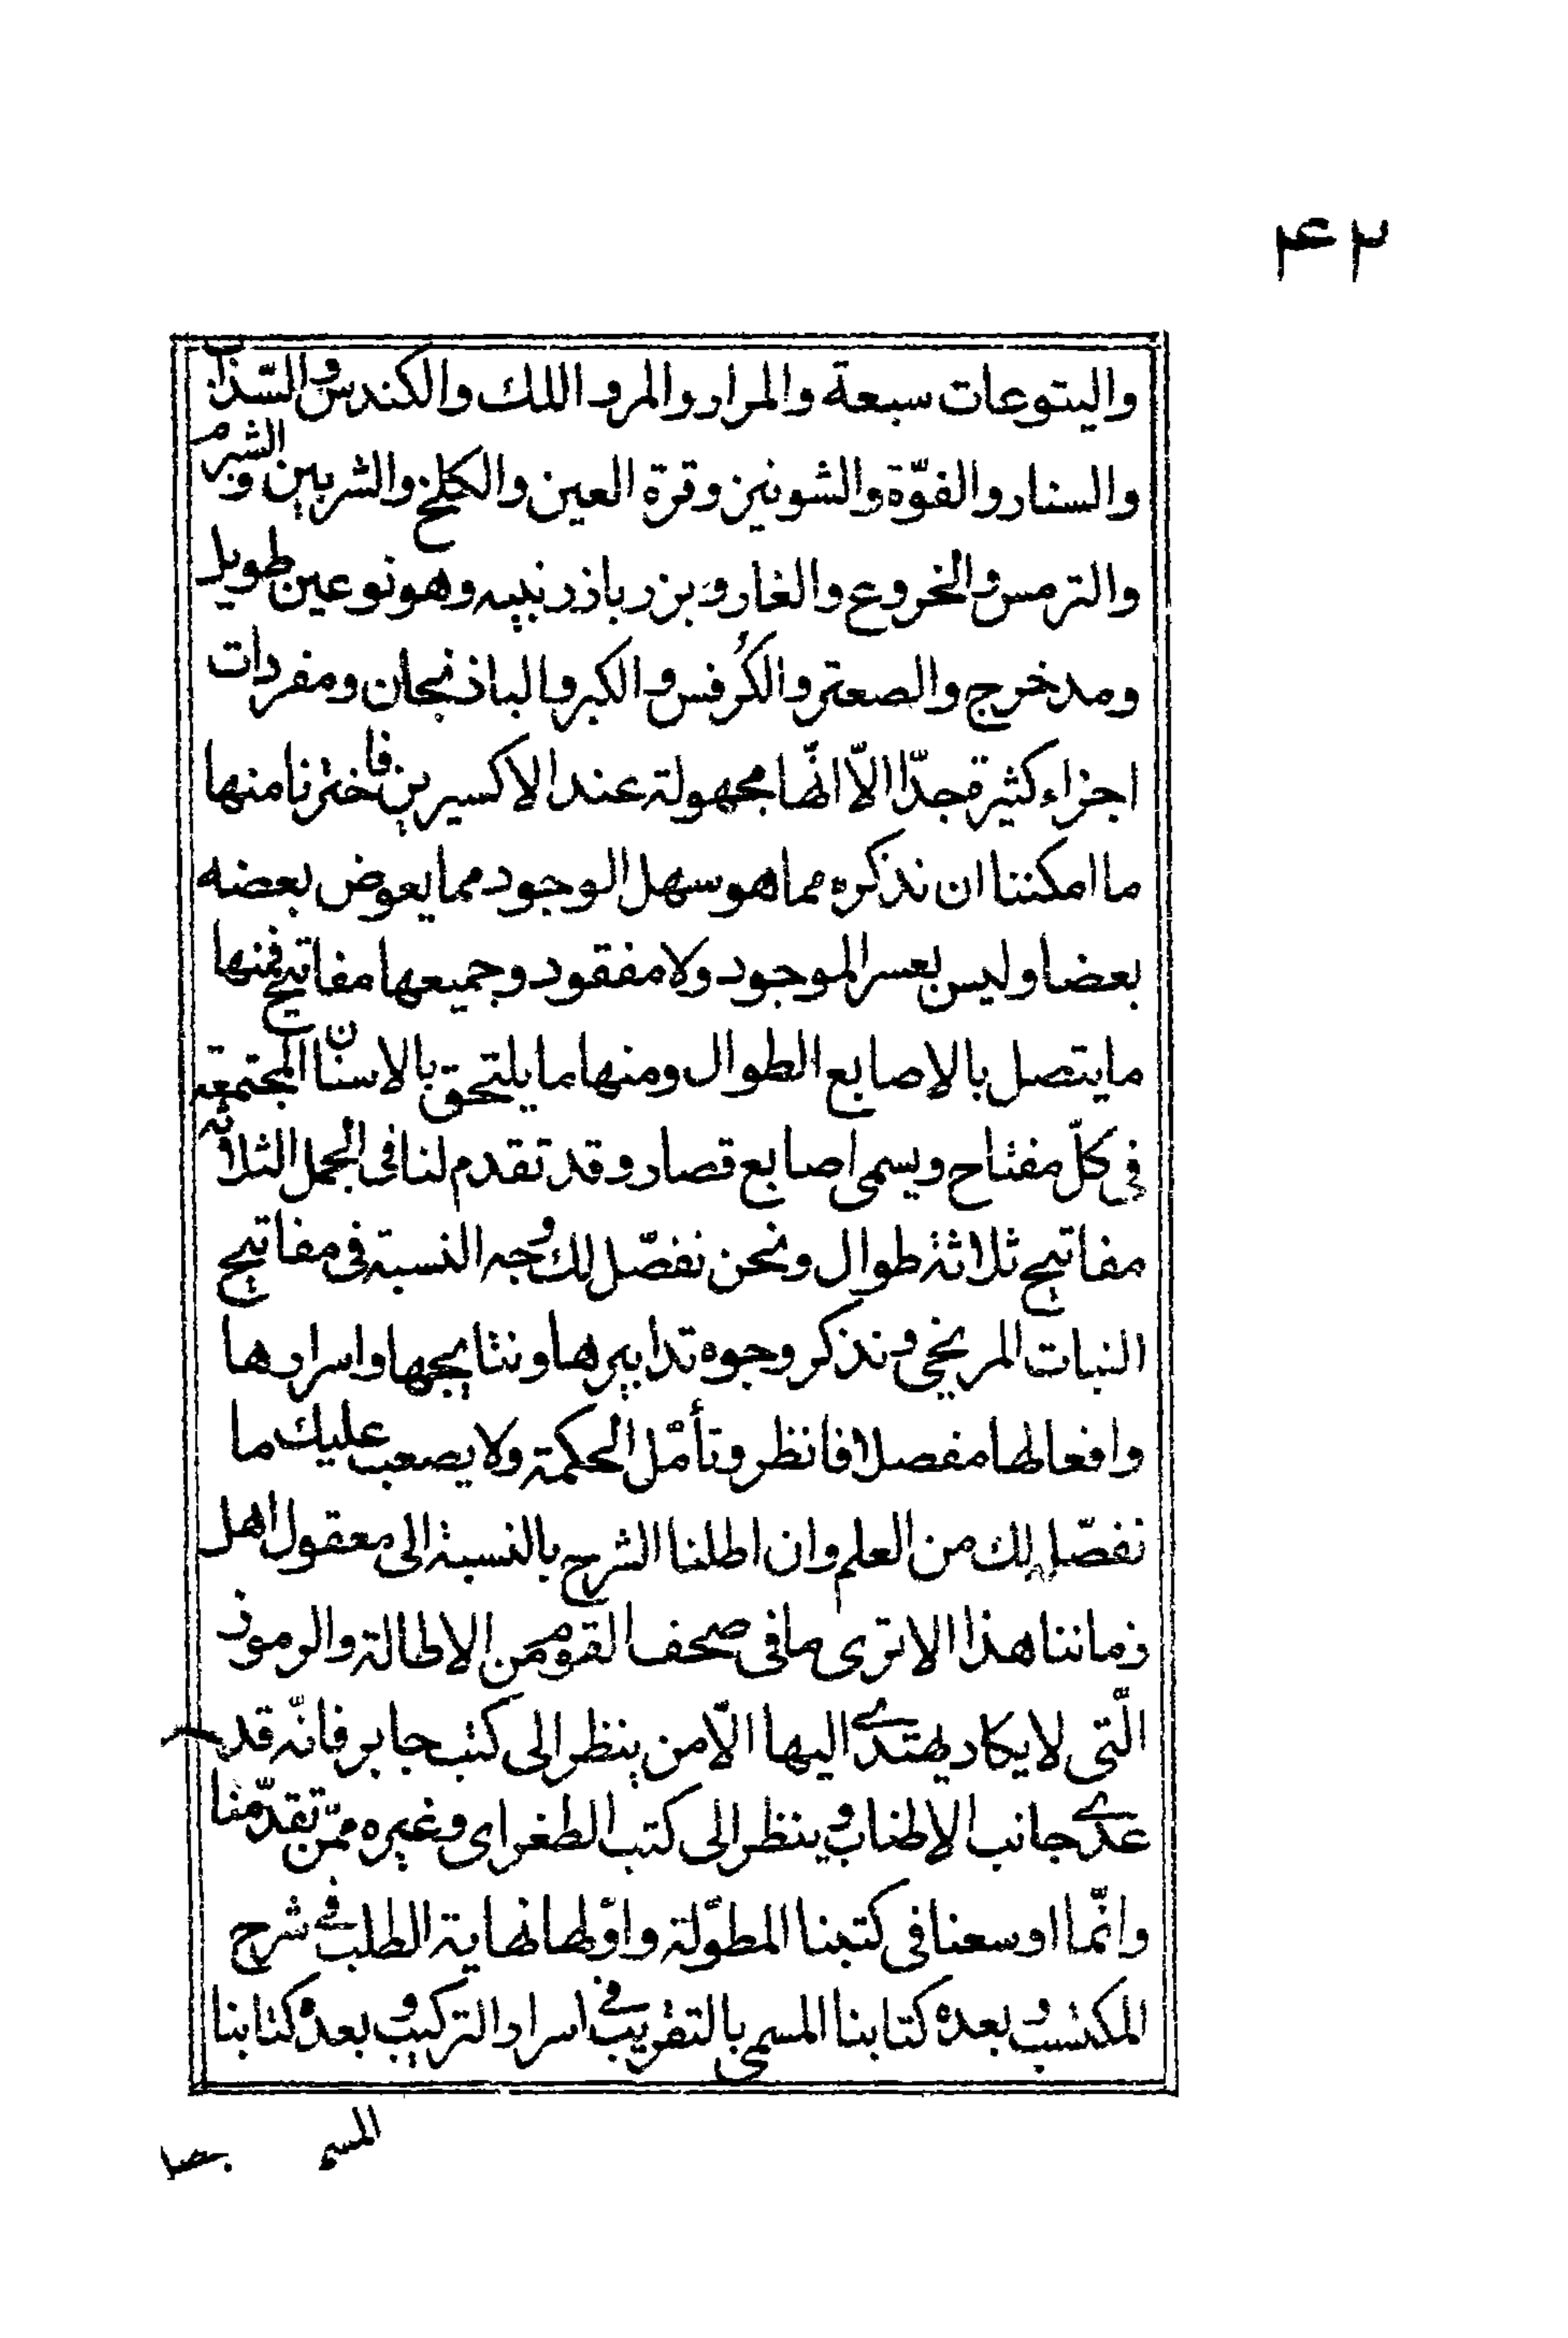 ۴۲
واليتوعات سبعة والمرار والمر و اللك والكندس والسّذاب
والسنار والفوّة والشونيز وقرة العين والكلخ والشربين والشبرم
والترمس والخروع والغار وبزر باذرنبيه وهو نوعين طويل
ومدخرج والصعتر والكُرفس والكبر والباذنجان ومفردات
اجزاء كثيرة جدّا الاّ انّها مجهولة عند الاكسيريين فاخترنا منها
ما امكننا ان نذكره مما هو سهل الوجود مما يعوض بعضه
بعضا وليس بعسر الموجود ولا مفقود وجميعها مفاتيح فمنها
ما يتصل بالاصابع الطوال ومنها ما يلتحق بالاسنّان المجتمعة
فى كلّ مفتاح ويسمى اصابع قصار وقد تقدم لنا فى الجمل الثلاثه
مفاتيح ثلاثة طوال ونحن نفصّل لك وجه النسبة فى مفاتيح
النبات المريخى ونذكر وجوه تدابيرها ونتايجها واسرارها
وافعالها مفصلا فانظر وتأمّل الحكمة ولا يصعب عليك ما
نفصّل لك من العلم وان اطلنا الشرح بالنسبة الى معقول اهل
زماننا هذا الا ترى ما فى صحف القوم من الاطالة والرموز
الّتى لا يكاد يهتدى اليها الاّ من ينظر الى كتب جابر فانّه قد
عدى جانب الاطناب وينظر الى كتب الطغراى وغيره ممّن تقدّمنا
وانّما اوسعنا فى كتبنا المطوّلة واوّلها نهاية الطلب فى شرح
المكتسب وبعده كتابنا المسمى بالتقريب فى اسرار التركيب وبعده كتابنا
المسمى